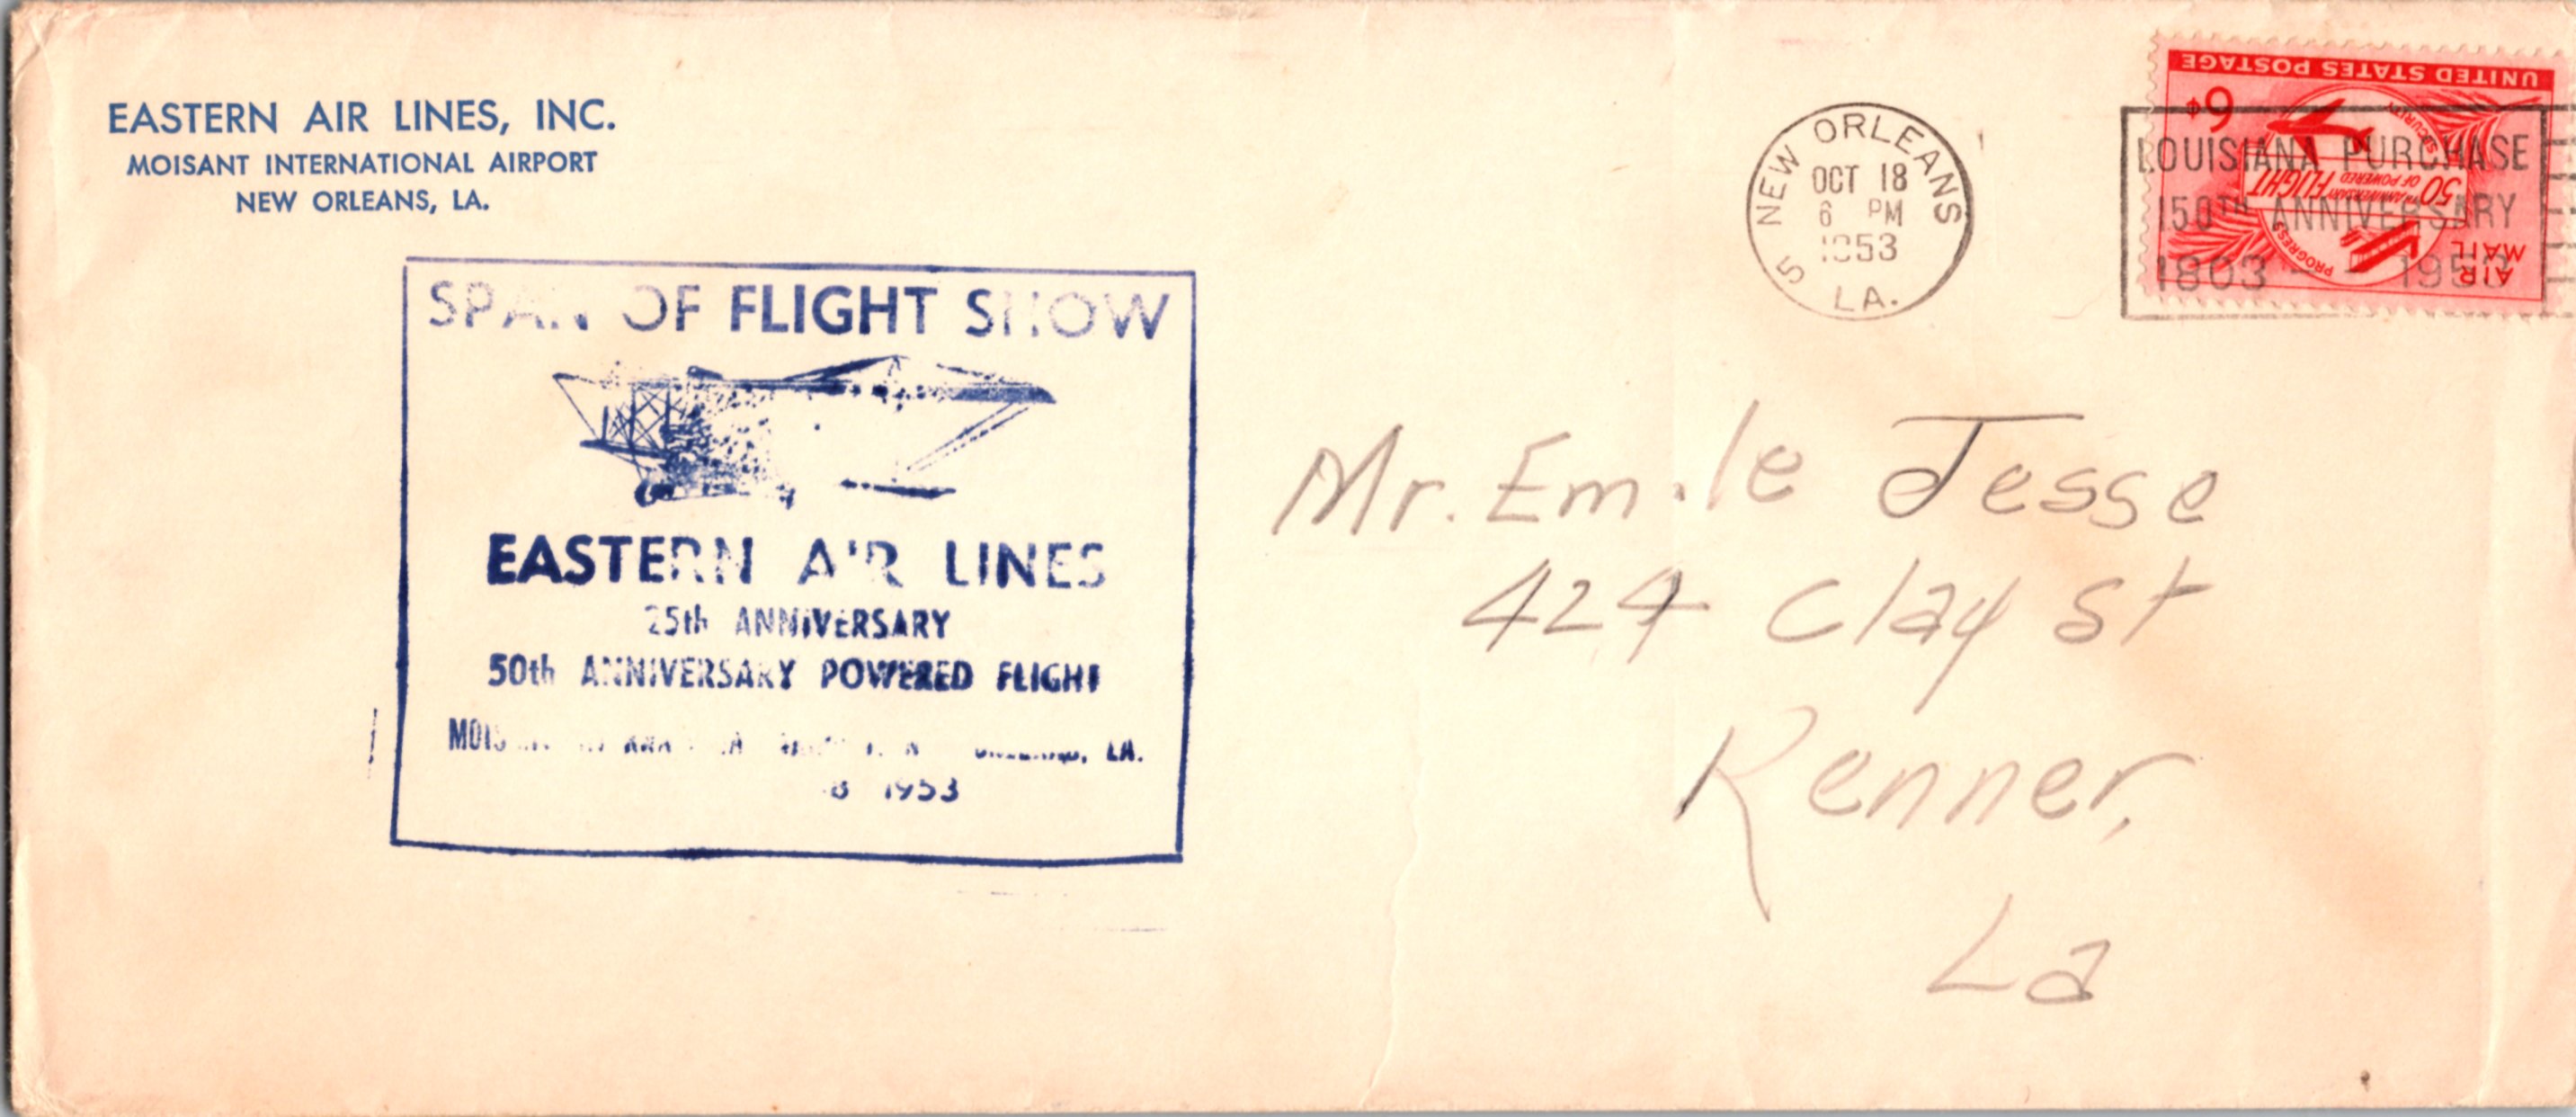 EASTERN AIR LINES, INC.
MOISANT INTERNATIONAL AIRPORT
NEW ORLEANS, LA.
SPAN OF FLIGHT SHOW
EASTERN AIR LINES
25th ANNIVERSARY
50th ANNIVERSARY POWERED FLIGHT
LA.
1953
NEW ORLEANS
OCT 18
6 PM
1953
5 LA.
LOUISIANA PURCHASE
150TH ANNIVERSARY
1803 - - 1953
UNITED STATES POSTAGE
6¢
SECURITY
50TH ANNIVERSARY OF POWERED
FLIGHT
PROGRESS
AIR
MAIL
Mr. Emile Jesse
424 Clay St
Kenner,
La